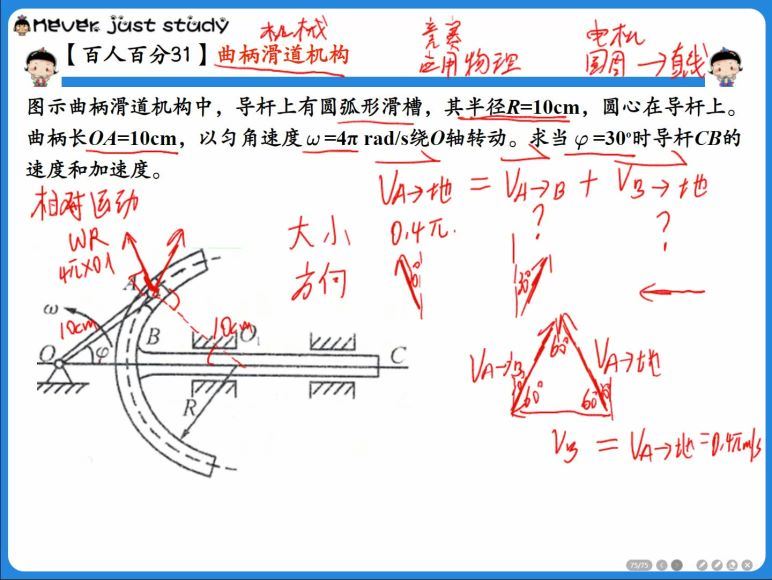 Never just study
机械 竞赛 电机
【百人百分31】曲柄滑道机构 应用物理 圆周→直线
图示曲柄滑道机构中，导杆上有圆弧形滑槽，其半径R=10cm，圆心在导杆上。
曲柄长OA=10cm，以匀角速度ω=4π rad/s绕O轴转动。求当φ=30°时导杆CB的
速度和加速度。
V A→地 = V A→B + V B→地
相对运动
大小 0.4π. ? ?
方向 30°
WR
4π×0.1
A
ω
10cm
B
10cm
O₁
O
φ
C
R
V A→B 60° V A→地
60° 60°
V B = V A→地 = 0.4π m/s
75/75